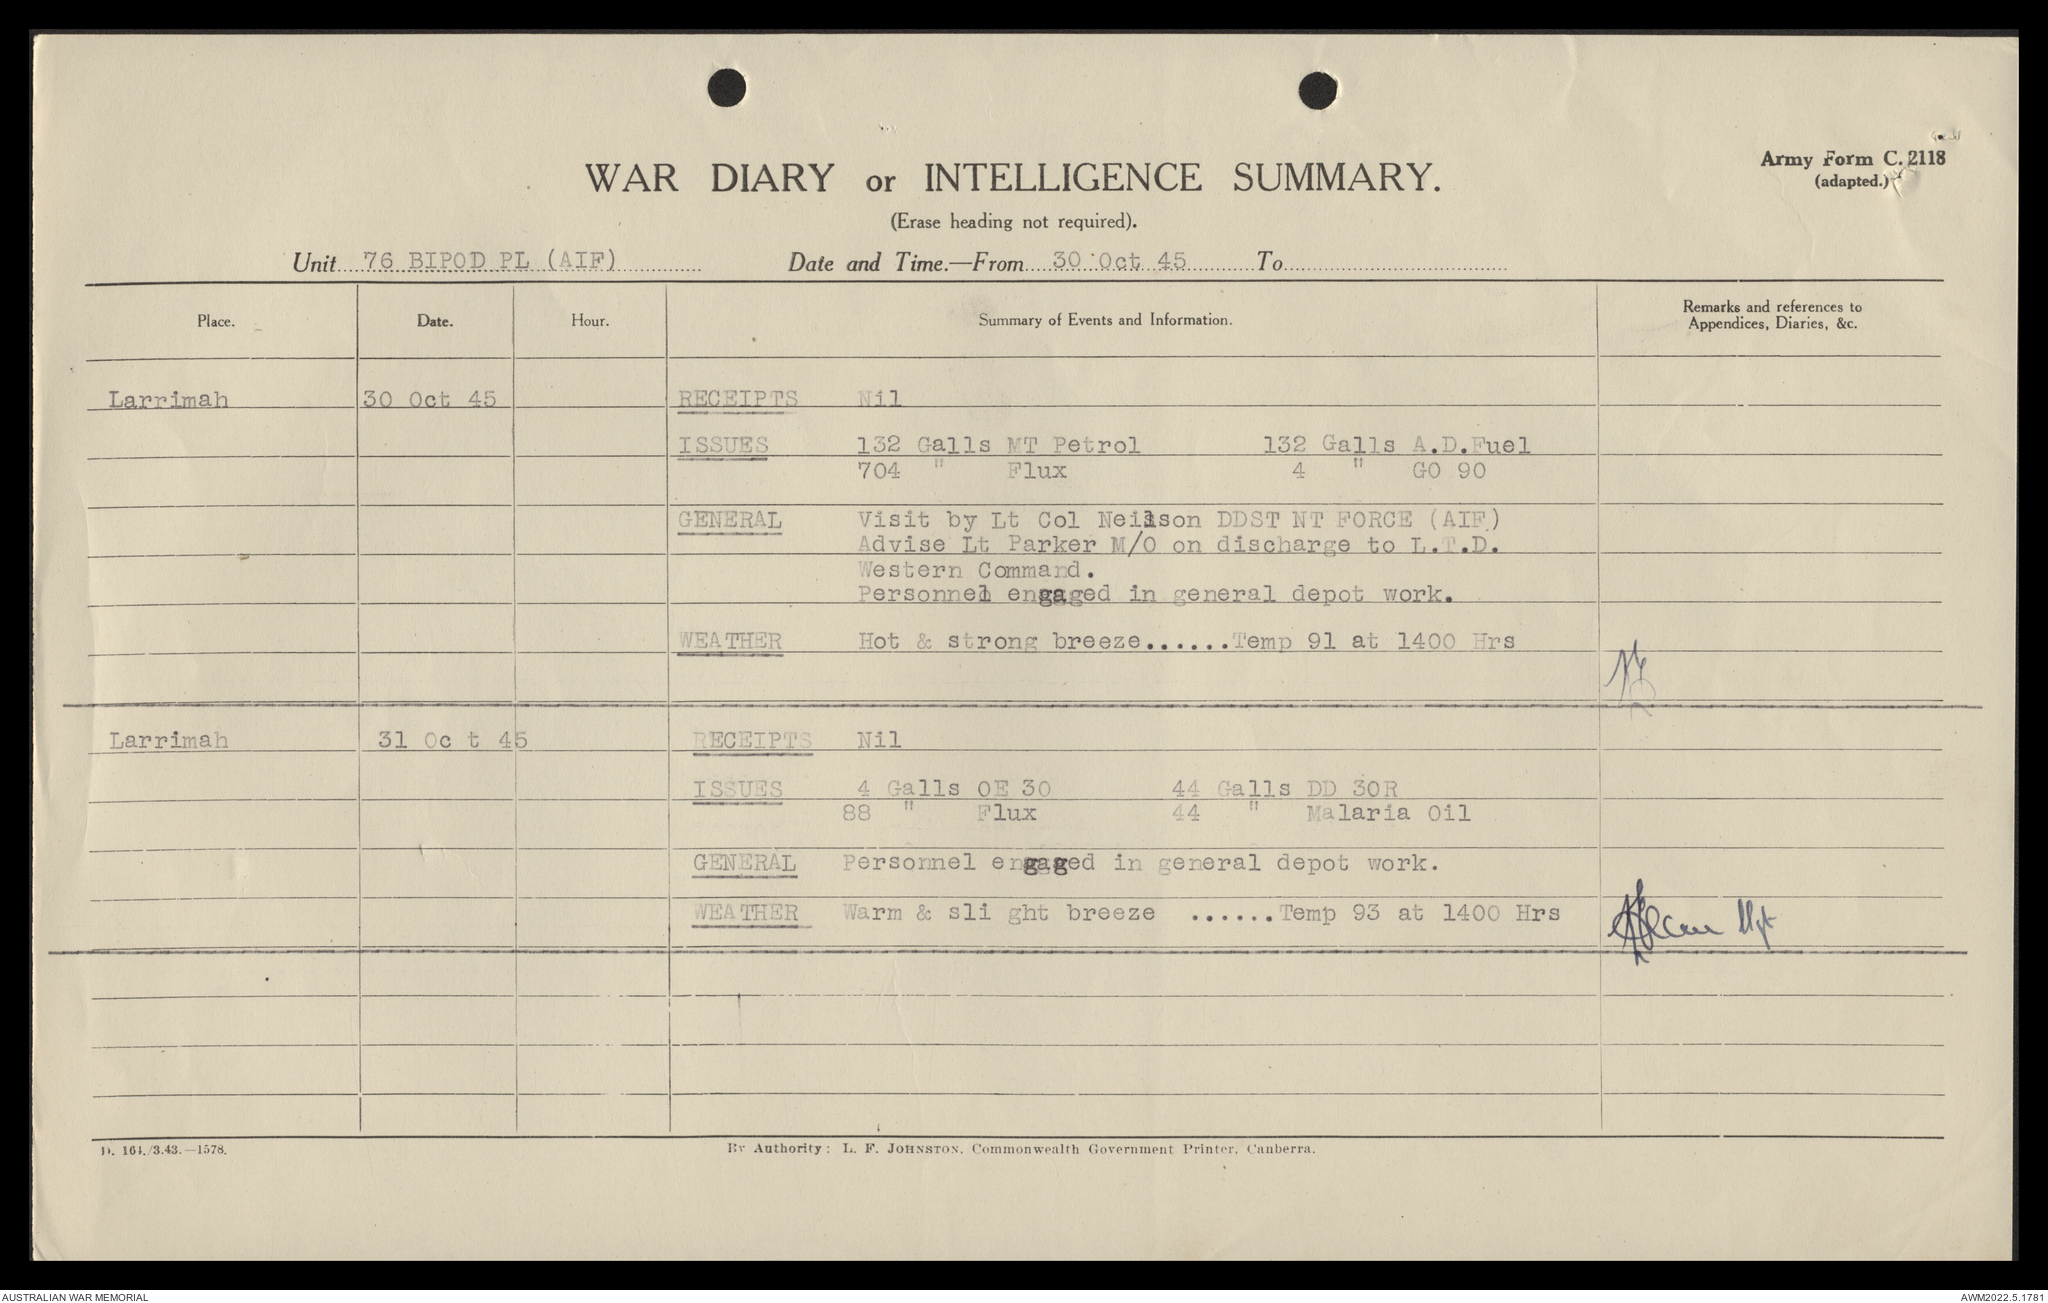 WAR DIARY or INTELLIGENCE SUMMARY.
Army Form C. 2118
(adapted.)
(Erase heading not required).
Unit 76 BIPOD PL (AIF) Date and Time.—From 30 Oct 45 To
Place. Date. Hour. Summary of Events and Information. Remarks and references to
Appendices, Diaries, &c.
Larrimah 30 Oct 45 RECEIPTS Nil
ISSUES 132 Galls MT Petrol 132 Galls A.D.Fuel
704 " Flux 4 " GO 90
GENERAL Visit by Lt Col Neilson DDST NT FORCE (AIF)
Advise Lt Parker M/O on discharge to L.T.D.
Western Command.
Personnel engaged in general depot work.
WEATHER Hot & strong breeze......Temp 91 at 1400 Hrs
Larrimah 31 Oc t 45 RECEIPTS Nil
ISSUES 4 Galls OE 30 44 Galls DD 30R
88 " Flux 44 " Malaria Oil
GENERAL Personnel engaged in general depot work.
WEATHER Warm & sli ght breeze ......Temp 93 at 1400 Hrs
D. 164./3.43.—1578. By Authority: L. F. JOHNSTON, Commonwealth Government Printer, Canberra.
AUSTRALIAN WAR MEMORIAL AWM2022.5.1781